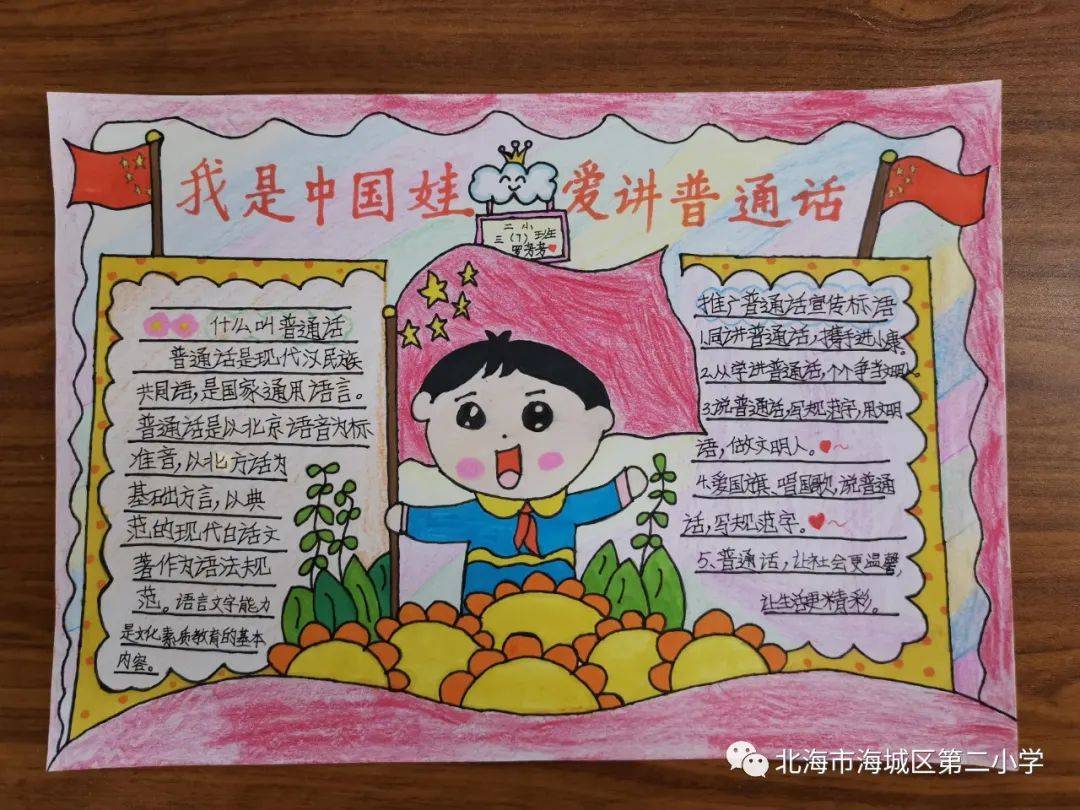 我是中国娃 爱讲普通话
二小
三(7)班
罗芳芳
什么叫普通话
普通话是现代汉民族
共同语,是国家通用语言。
普通话是以北京语音为标
准音,以北方话为
基础方言,以典
范的现代白话文
著作为语法规
范。语言文字能力
是文化素质教育的基本
内容。
推广普通话宣传标语
1.同讲普通话,携手进小康。
2.从学讲普通话,个个争当文明人。
3.说普通话,写规范字,用文明
语,做文明人。
4.爱国旗,唱国歌,说普通
话,写规范字。
5、普通话,让社会更温馨,
让生活更精彩。
北海市海城区第二小学